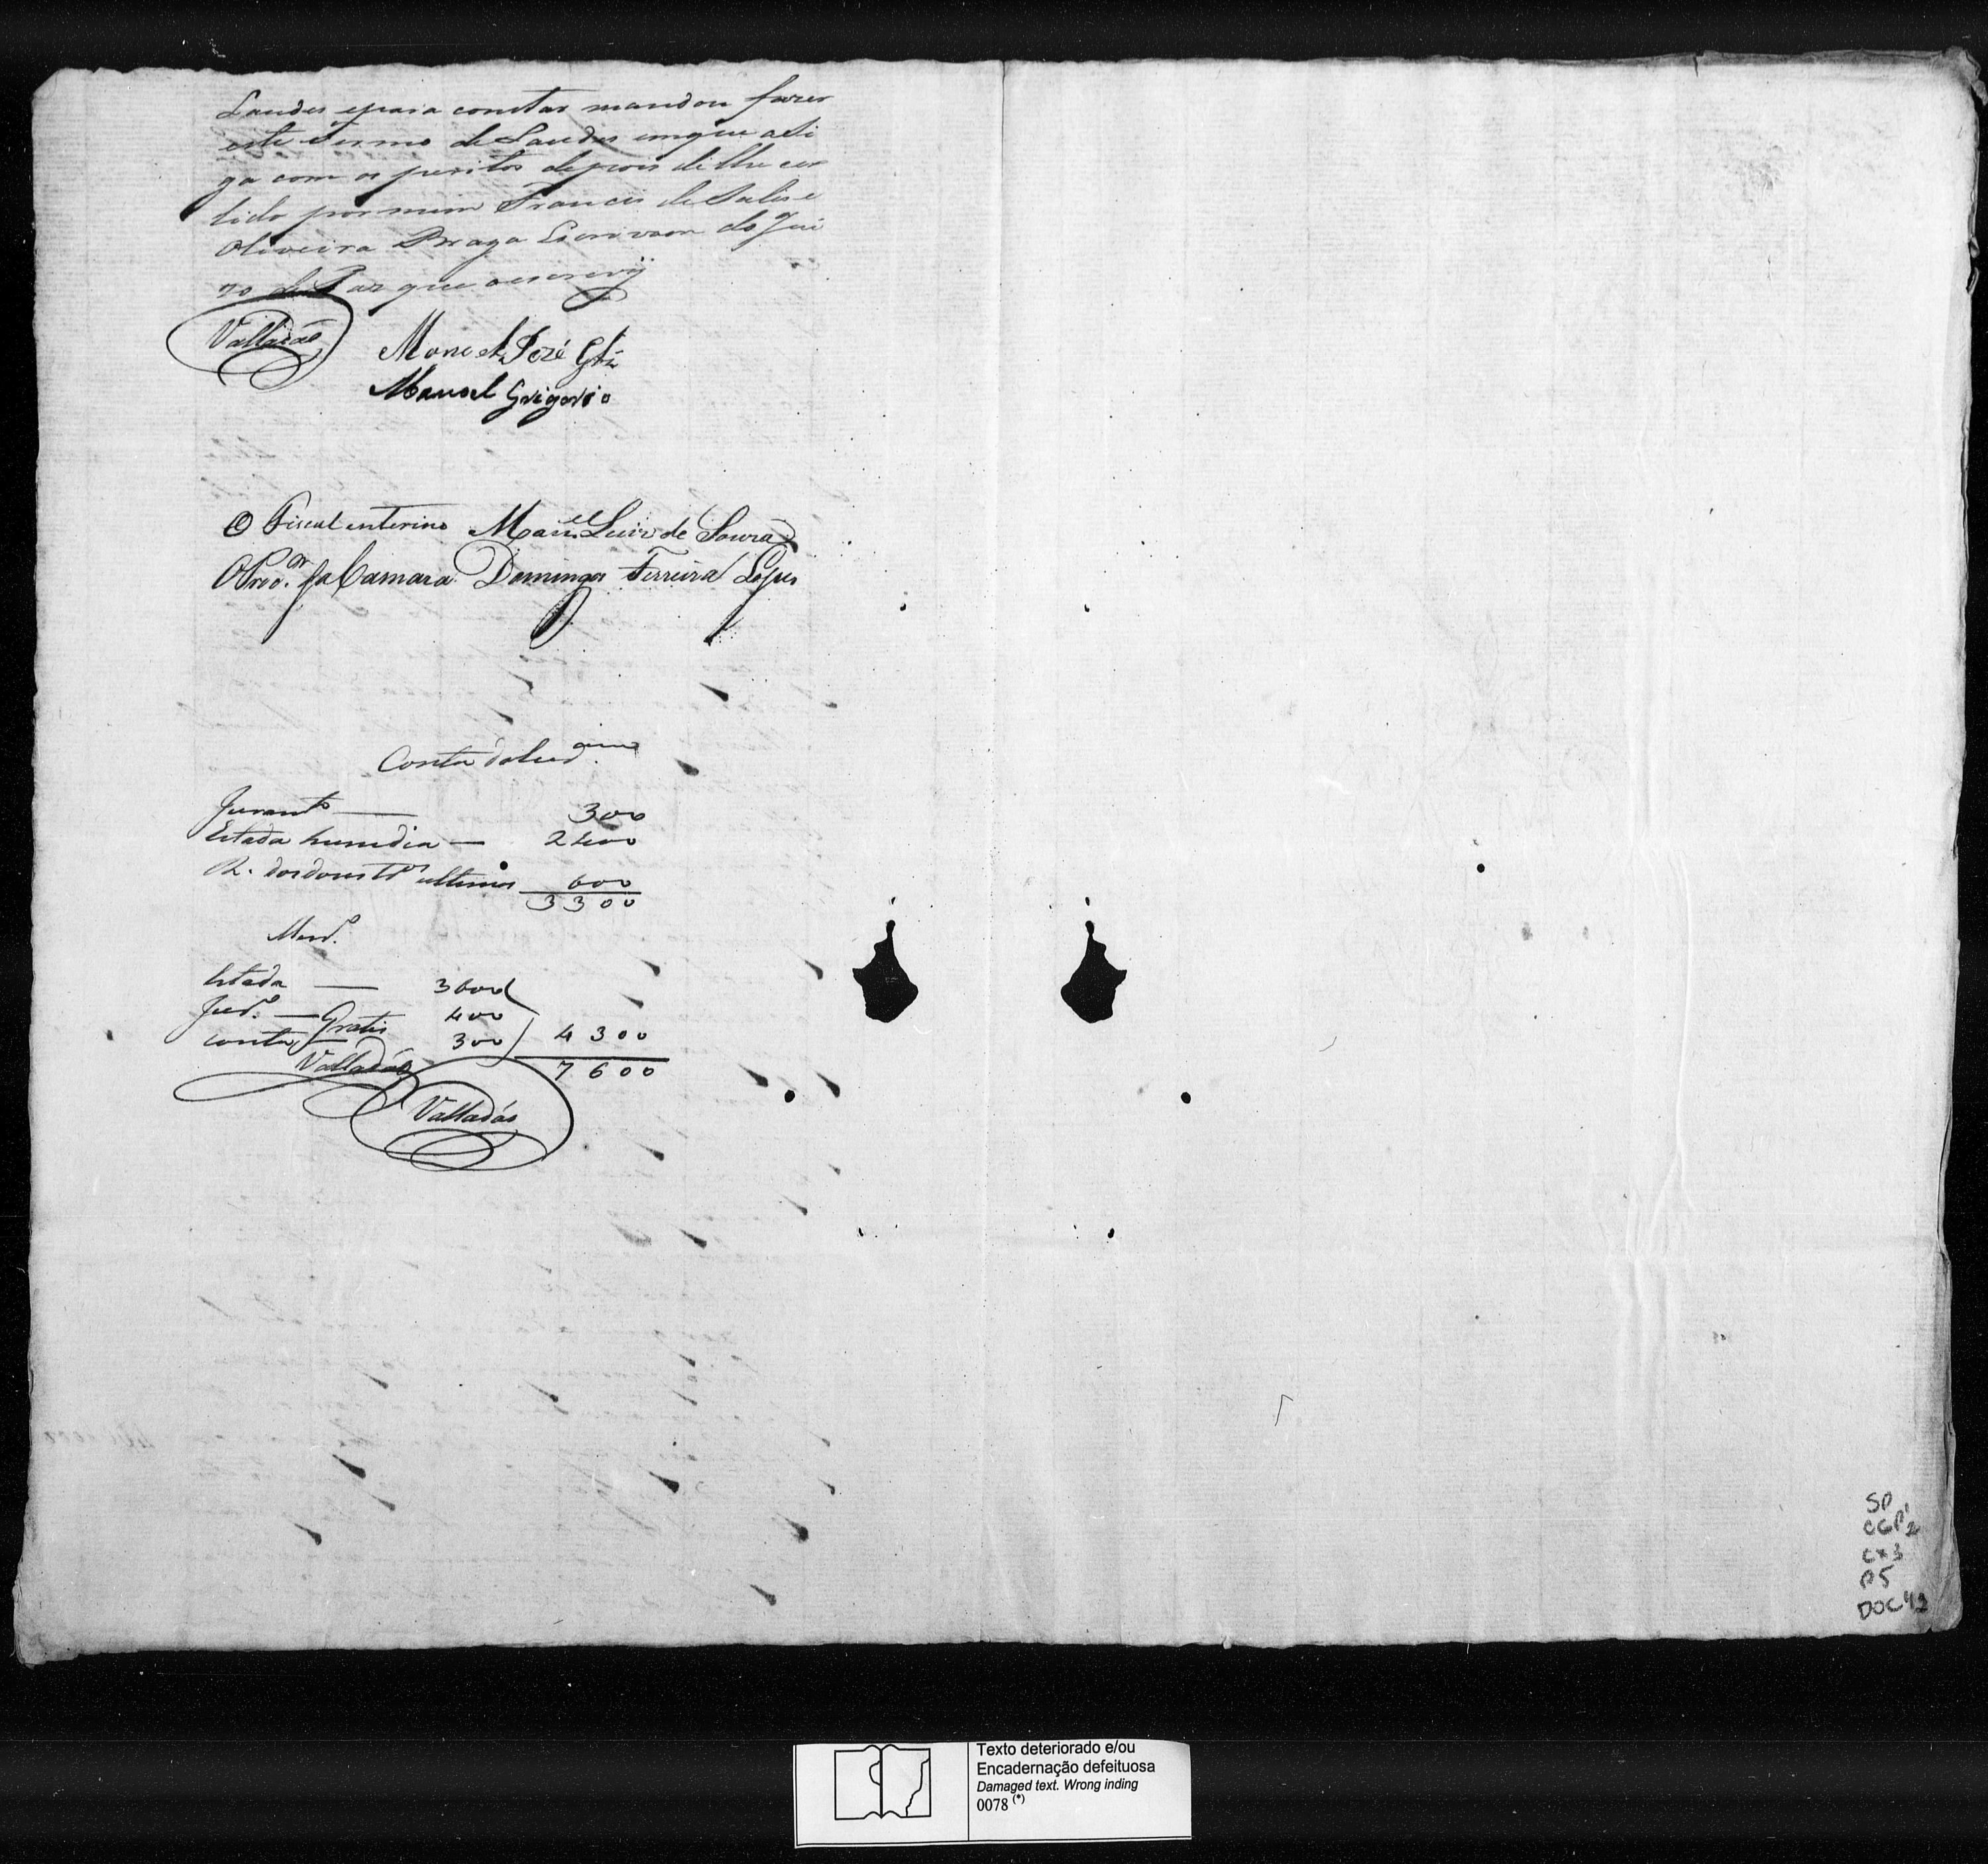 Laudes epara constar mandou fazer
este termo de Laudes emque asi
ga com os peritos depois de lhe ser
lido por mim Francis de Salis e
Oliveira Braga Escrivaõ do Jui
zo de Paz que oescrevy
Valladaõ
Manoel Jozé Glz
Manoel Grigorio
O Fiscal enterino Man.el Luiz de Souza
O Proc.or da Camara Domingos Ferreira Lopes
Conta
Juramt.o — 300
Estada humdia — 2400
R. dos dous ultimos 600
3300
Estada — 3600
Jur.o — Gratis 400
conta 300 4300
7600
Valladaõ
Valladaõ
SP
CGP2
CX3
P5
DOC 42
Texto deteriorado e/ou
Encadernação defeituosa
Damaged text. Wrong inding
0078 (*)